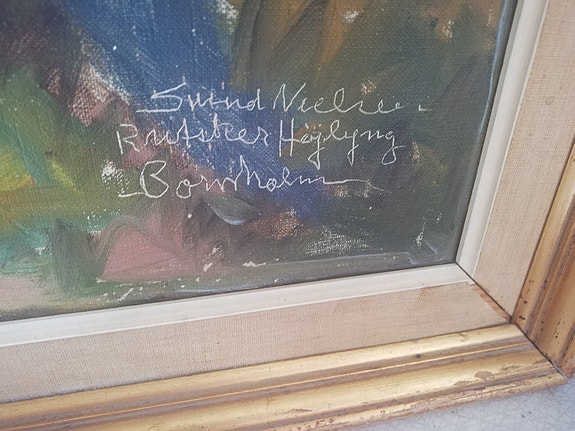 Svend Nielsen.
Rutsker Højlyng
Bornholm